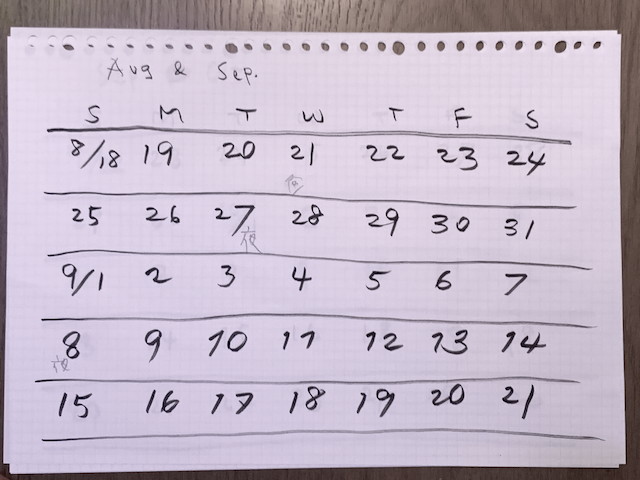 Aug & Sep.
S M T W T F S
8/18 19 20 21 22 23 24
25 26 27 28 29 30 31
9/1 2 3 4 5 6 7
8 9 10 11 12 13 14
15 16 17 18 19 20 21